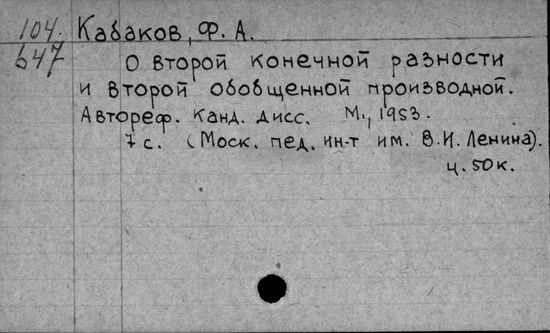 104. Кабаков, Ф. А.
647
О второй конечной разности
и второй обобщенной производной.
Автореф. Канд. дисс. М., 1953.
7 с. (Моск. пед. ин-т им. В.И. Ленина).
ц. 50 к.